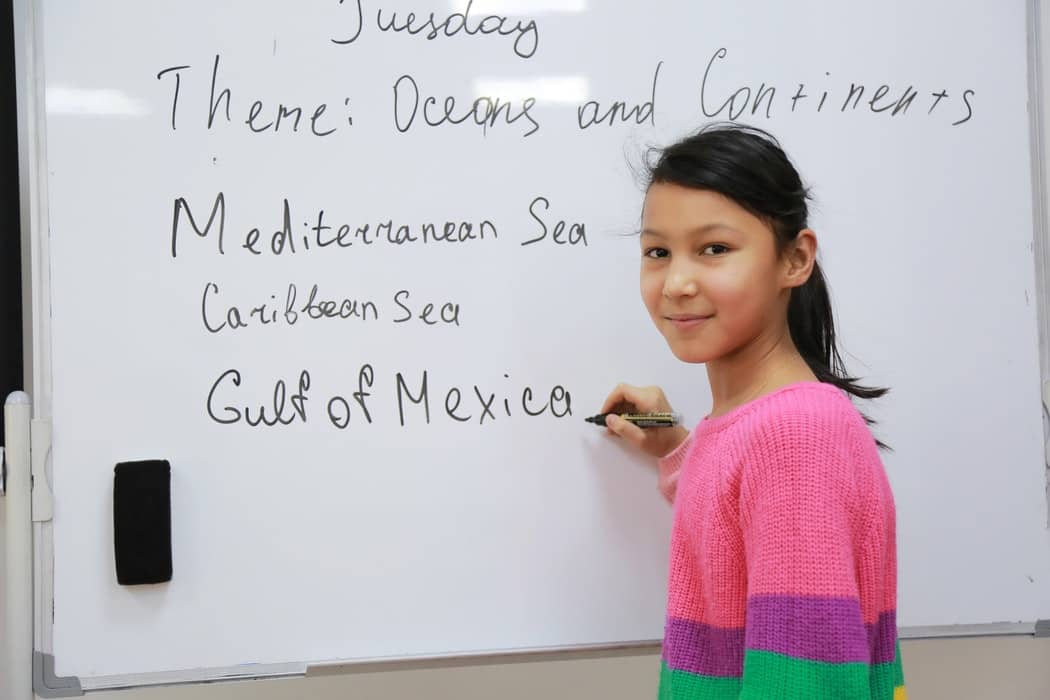 Tuesday
Theme: Oceans and Continents
Mediterranean Sea
Caribbean Sea
Gulf of Mexica